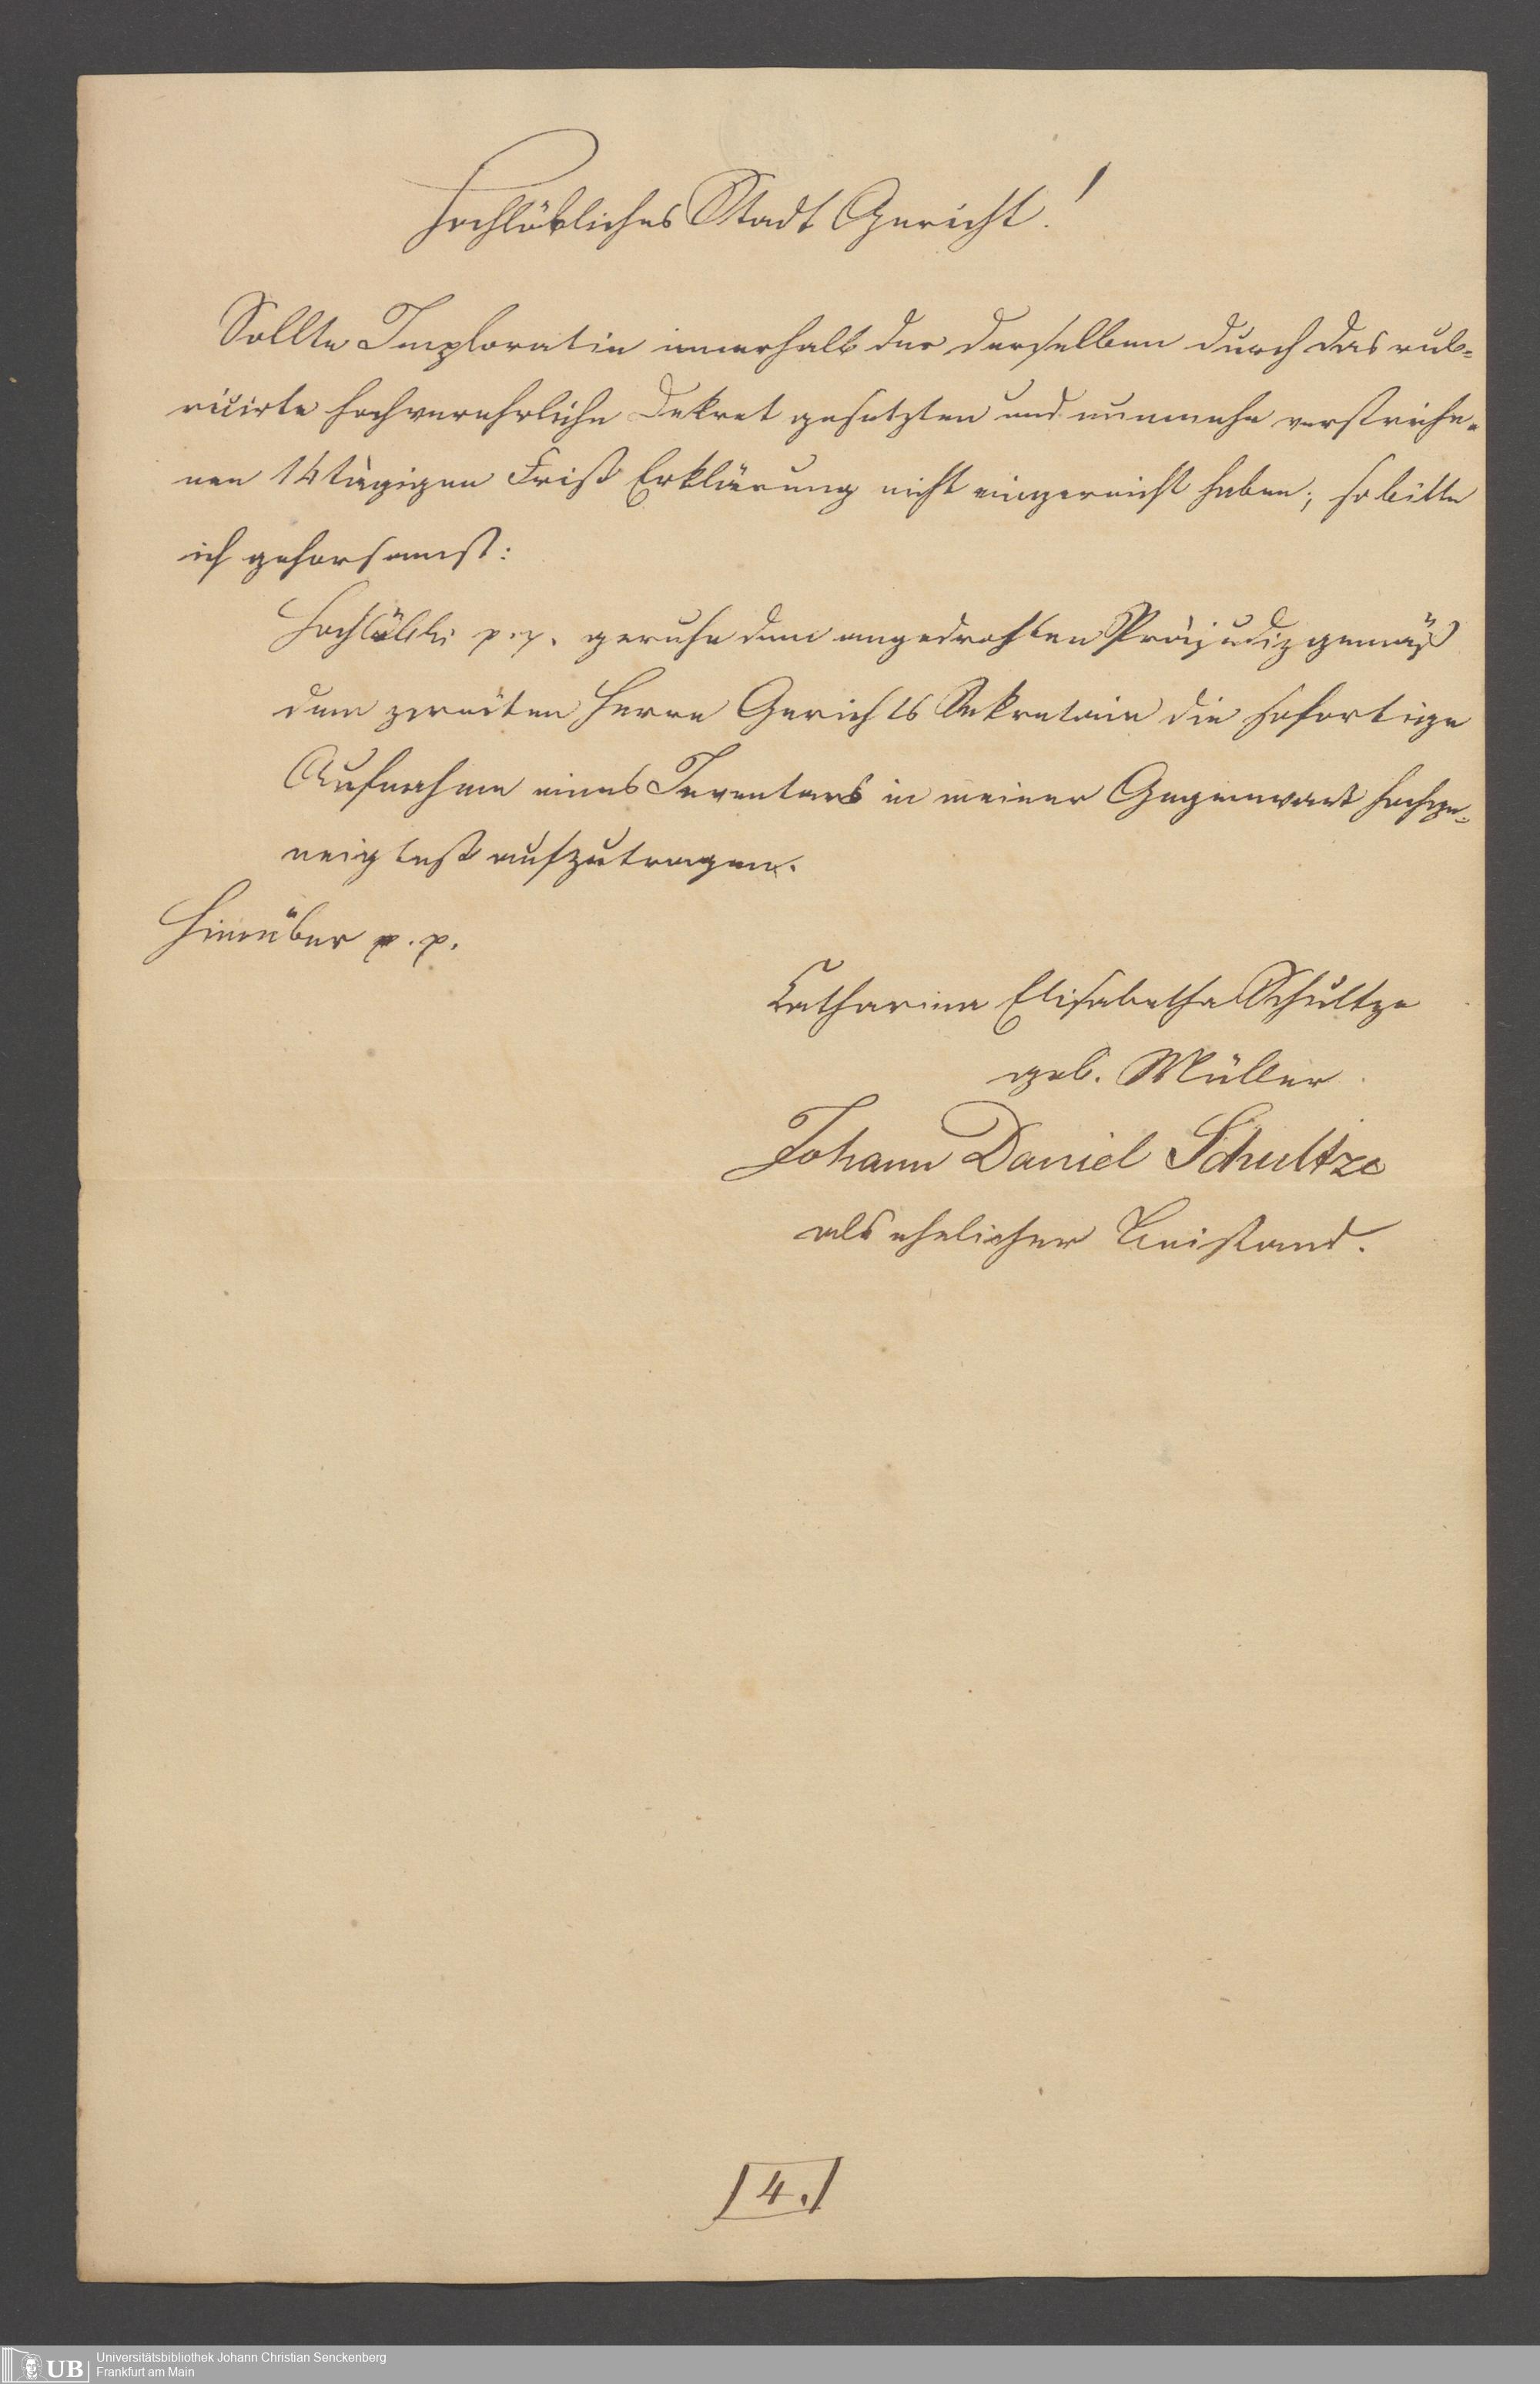 Hochlöbliches Stadt Gericht!
Sollte Imploratin innerhalb der derselben durch das rub-
ricirte hochverehrliche Dekret gesetzten und nunmehr verstriche-
nen 14tägigen Frist Erklärung nicht eingereicht haben; so bitte
ich gehorsamst:
Hochlöbl: p. p. geruhe dem angedrohten Präjudiz gemäß
dem zweiten Herrn Gerichts Sekretair die sofortige
Aufnahme eines Inventars in meiner Gegenwart hochge-
neigtest aufzutragen.
Hierüber p. p.
Catharina Elisabetha Schultze
geb. Müller
Johann Daniel Schultze
als ehelicher Beistand.
4.
UB
Universitätsbibliothek Johann Christian Senckenberg
Frankfurt am Main